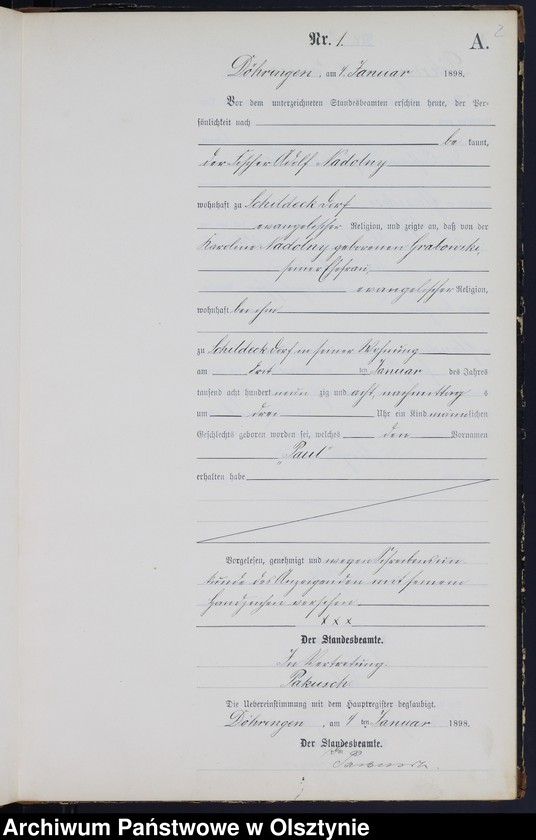 Nr. 1.
A.
2
Döhringen, am 4. Januar 1898.
Vor dem unterzeichneten Standesbeamten erschien heute, der Per-
sönlichkeit nach
be kannt,
der Fischer Adolf Nadolny
wohnhaft zu Schildeck Dorf
evangelischer Religion, und zeigte an, daß von der
Karoline Nadolny geborenen Grabowski,
seiner Ehefrau,
evangelischer Religion,
wohnhaft bei ihm
zu Schildeck Dorf in seiner Wohnung
am ten Januar des Jahres
tausend acht hundert neun zig und acht, nachmittag s
um drei Uhr ein Kind männlichen
Geschlechts geboren worden sei, welches den Vornamen
"Paul"
erhalten habe
Vorgelesen, genehmigt und wegen Schreibensun
kunde des Anzeigenden mit seinem
Handzeichen versehen
x x x
Der Standesbeamte.
In Vertretung
Pakusch
Die Uebereinstimmung mit dem Hauptregister beglaubigt.
Döhringen, am 4 ten Januar 1898.
Der Standesbeamte.
Archiwum Państwowe w Olsztynie